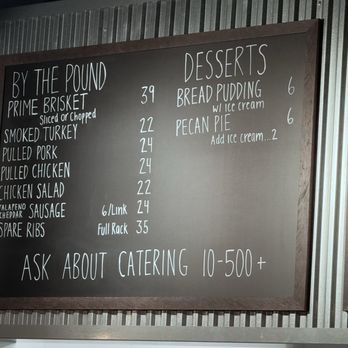 BY THE POUND
PRIME BRISKET 39
Sliced or Chopped
SMOKED TURKEY 22
PULLED PORK 24
PULLED CHICKEN 24
CHICKEN SALAD 22
JALAPENO CHEDDAR SAUSAGE 6/Link 24
SPARE RIBS Full Rack 35
DESSERTS
BREAD PUDDING 6
w/ Ice cream
PECAN PIE 6
Add Ice cream...2
ASK ABOUT CATERING 10-500+